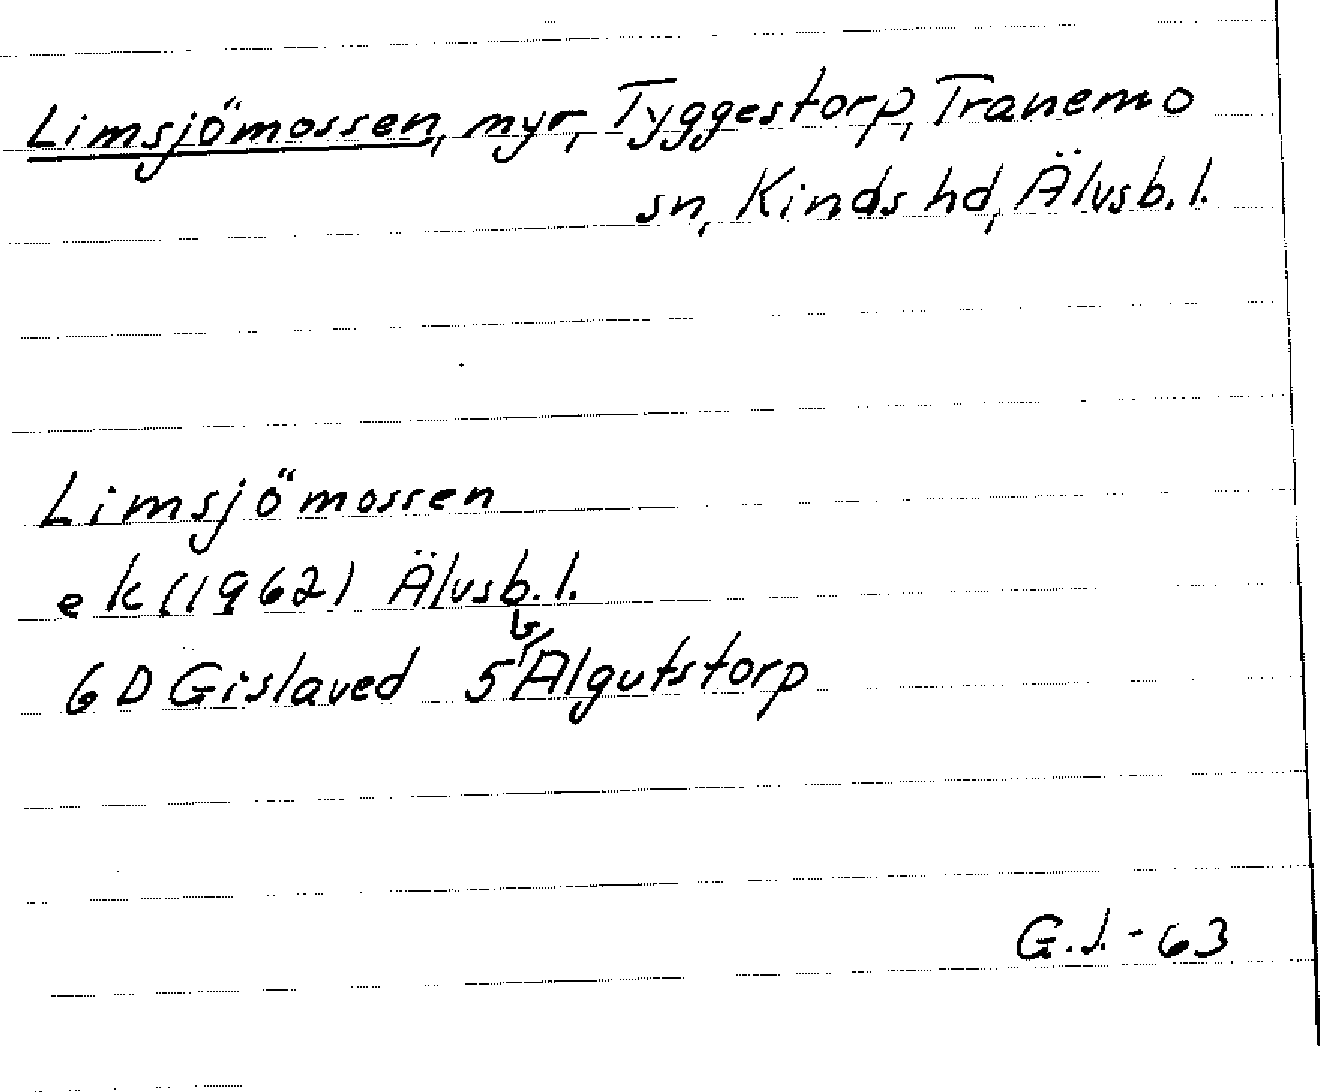 Limsjömossen, myr, Tyggestorp, Tranemo
sn, Kinds hd, Älvsb. l.
Limsjömossen
e k (1962) Älvsb. l.
6 D Gislaved 5 b Algutstorp
G.J. - 63